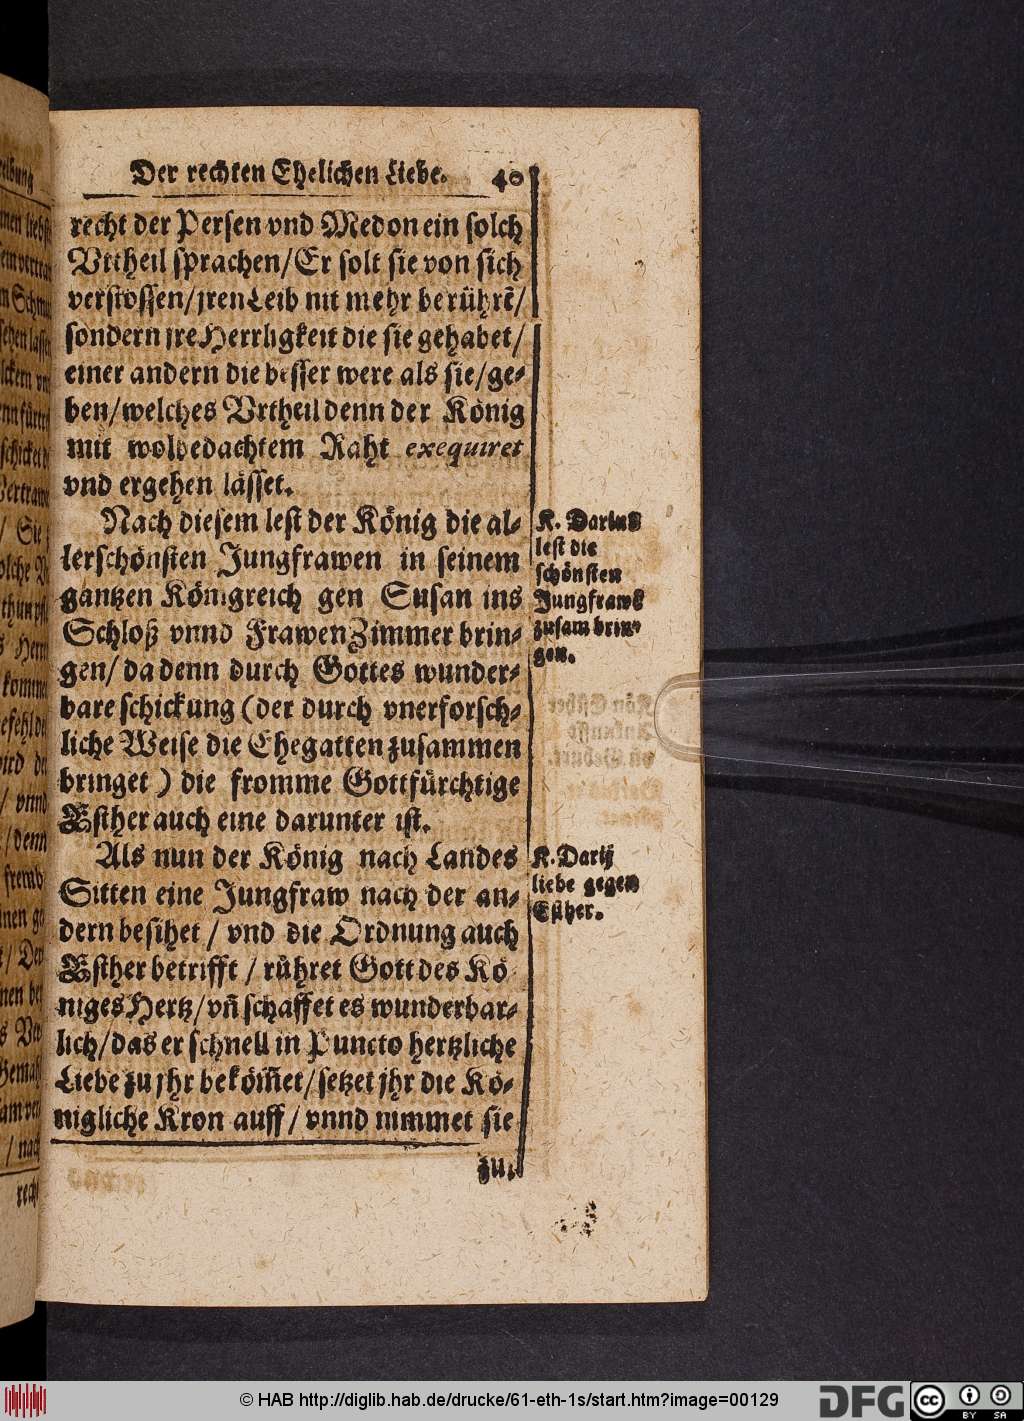 Der rechten Ehelichen Liebe. 40
recht der Persen vnd Medon ein solch
Vrtheil sprachen/Er solt sie von sich
verstossen/jren Leib nit mehr berührẽ/
sondern jre Herrligkeit die sie gehabet/
einer andern die besser were als sie/ge-
ben/welches Vrtheil denn der König
mit wolbedachtem Raht exequiret
vnd ergehen lässet.
Nach diesem lest der König die al-
lerschönsten Jungfrawen in seinem
gantzen Königreich gen Susan ins
Schloß vnnd FrawenZimmer brin-
gen/ da denn durch Gottes wunder-
bare schickung (der durch vnerforsch-
liche Weise die Ehegatten zusammen
bringet) die fromme Gottfürchtige
Esther auch eine darunter ist.
K. Darius
lest die
schönsten
Jungfraws
zusam brin-
gen.
Als nun der König nach Landes
Sitten eine Jungfraw nach der an-
dern besihet / vnd die Ordnung auch
Esther betrifft / rühret Gott des Kö
niges Hertz/vñ schaffet es wunderbar-
lich/das er schnell in Puncto hertzliche
Liebe zu jhr beköm̃et/setzet jhr die Kö-
nigliche Kron auff / vnnd nimmet sie
K. Darij
liebe gegen
Esther.
zu.
© HAB http://diglib.hab.de/drucke/61-eth-1s/start.htm?image=00129
DFG
cc
BY SA